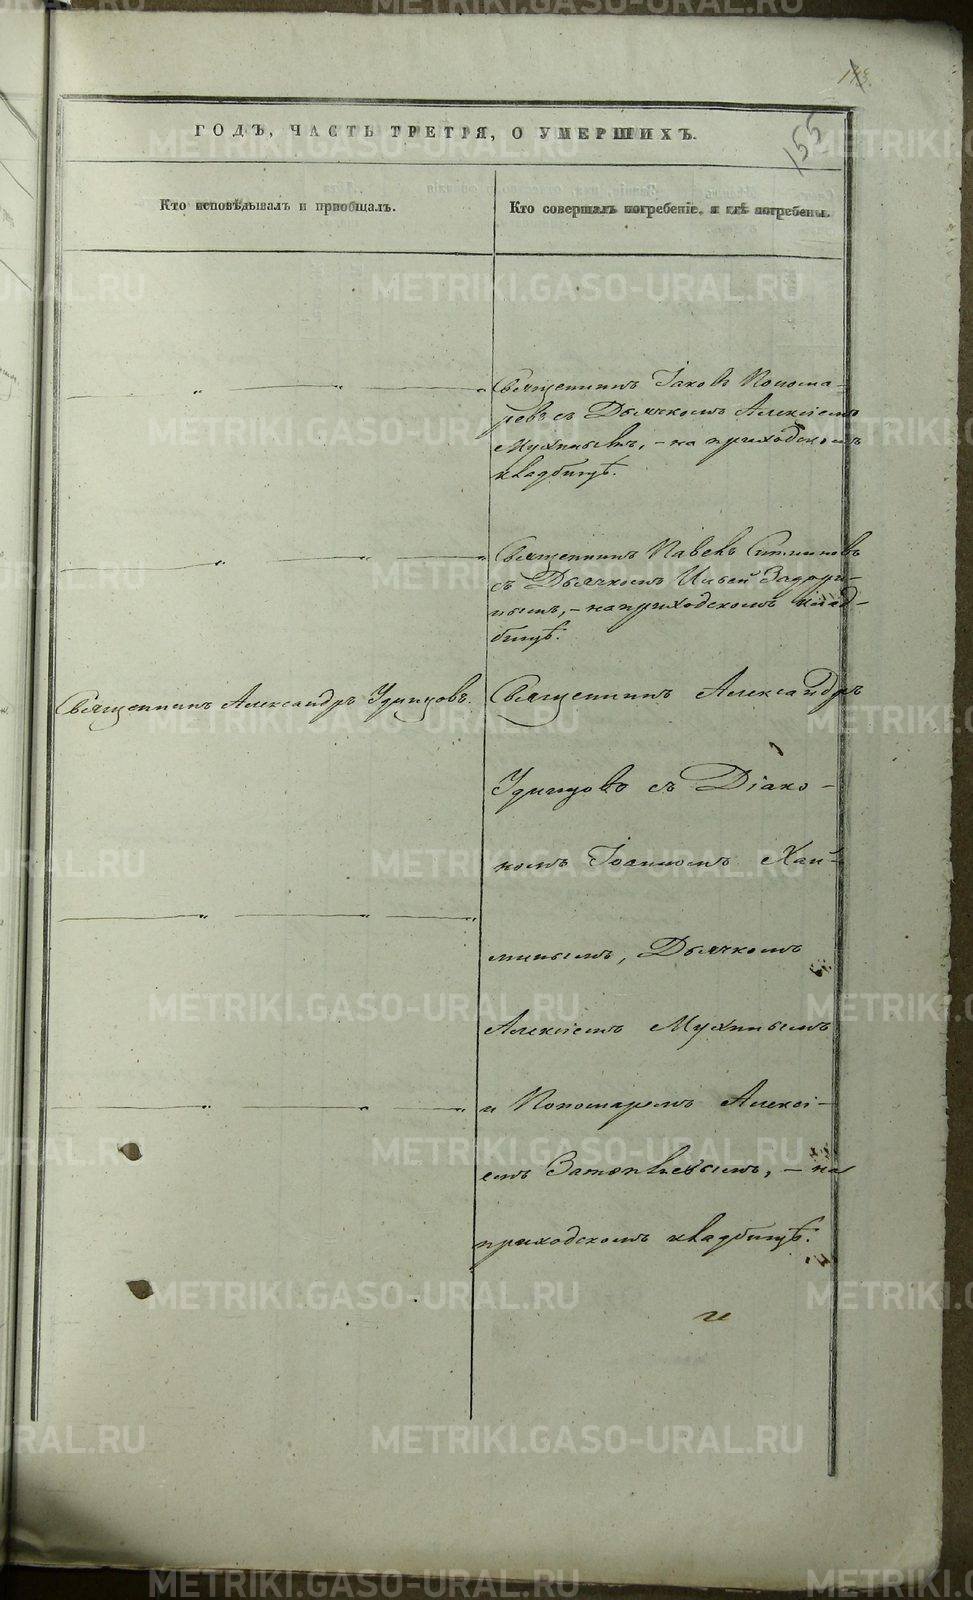 155
ГОДЪ, ЧАСТЬ ТРЕТІЯ, О УМЕРШИХЪ.
Кто исповѣдывалъ и пріобщалъ.
Кто совершалъ погребеніе, и гдѣ погребены.
Священникъ Іаковъ Понома-
ревъ съ Дьячкомъ Алексіемъ
Мухинымъ, - на приходскомъ
кладбищѣ.
Священникъ Павелъ
съ Дьячкомъ Ильей Задори-
нымъ, - на приходскомъ клад-
бищѣ.
Священникъ Александръ Удинцовъ.
Священникъ Александръ
Удинцовъ съ Діако-
номъ Іоанномъ Хай-
минымъ, Дьячкомъ
Алексіемъ Мухинымъ
и Пономаремъ Алексі-
емъ - на
приходскомъ кладбищѣ.
METRIKI.GASO-URAL.RU